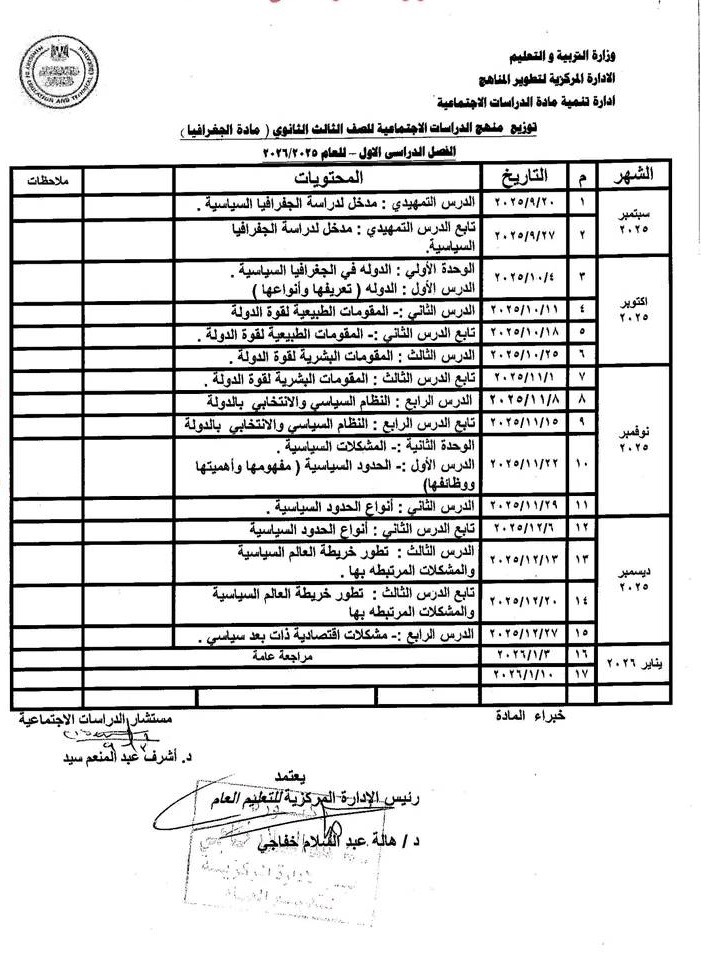 وزارة التربية و التعليم
الادارة المركزية لتطوير المناهج
ادارة تنمية مادة الدراسات الاجتماعية
توزيع منهج الدراسات الاجتماعية للصف الثالث الثانوي ( مادة الجغرافيا )
الفصل الدراسى الاول – للعام ٢٠٢٦/٢٠٢٥
الشهر م التاريخ المحتويات ملاحظات
سبتمبر ٢٠٢٥
١ ٢٠٢٥/٩/٢٠ الدرس التمهيدي : مدخل لدراسة الجغرافيا السياسية .
٢ ٢٠٢٥/٩/٢٧ تابع الدرس التمهيدي : مدخل لدراسة الجغرافيا
السياسية.
اكتوبر ٢٠٢٥
٣ ٢٠٢٥/١٠/٤ الوحدة الأولي : الدوله في الجغرافيا السياسية .
الدرس الأول : الدوله ( تعريفها وأنواعها )
٤ ٢٠٢٥/١٠/١١ الدرس الثاني :- المقومات الطبيعية لقوة الدولة
٥ ٢٠٢٥/١٠/١٨ تابع الدرس الثاني :- المقومات الطبيعية لقوة الدولة .
٦ ٢٠٢٥/١٠/٢٥ الدرس الثالث : المقومات البشرية لقوة الدولة .
نوفمبر ٢٠٢٥
٧ ٢٠٢٥/١١/١ تابع الدرس الثالث : المقومات البشرية لقوة الدولة .
٨ ٢٠٢٥/١١/٨ الدرس الرابع : النظام السياسي والانتخابي بالدولة
٩ ٢٠٢٥/١١/١٥ تابع الدرس الرابع : النظام السياسي والانتخابي بالدولة
١٠ ٢٠٢٥/١١/٢٢ الوحدة الثانية :- المشكلات السياسية .
الدرس الأول :- الحدود السياسية ( مفهومها وأهميتها
ووظائفها)
١١ ٢٠٢٥/١١/٢٩ الدرس الثاني : أنواع الحدود السياسية .
ديسمبر ٢٠٢٥
١٢ ٢٠٢٥/١٢/٦ تابع الدرس الثاني : أنواع الحدود السياسية
١٣ ٢٠٢٥/١٢/١٣ الدرس الثالث : تطور خريطة العالم السياسية
والمشكلات المرتبطه بها .
١٤ ٢٠٢٥/١٢/٢٠ تابع الدرس الثالث : تطور خريطة العالم السياسية
والمشكلات المرتبطه بها
١٥ ٢٠٢٥/١٢/٢٧ الدرس الرابع :- مشكلات اقتصادية ذات بعد سياسي .
يناير ٢٠٢٦
١٦ ٢٠٢٦/١/٣ مراجعة عامة
١٧ ٢٠٢٦/١/١٠
خبراء المادة
مستشار الدراسات الاجتماعية
د. أشرف عبد المنعم سيد
يعتمد
رئيس الإدارة المركزية للتعليم العام
د / هالة عبد السلام خفاجي